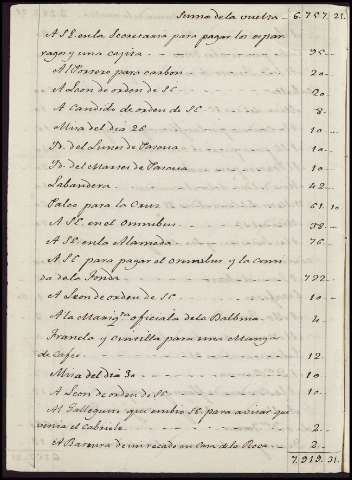 Suma de la vuelta - 6.757. 21.
A SE. en la Secretaria para pagar los espar-
ragos y una copita - 95 -
Al Portero para carbon - 20 -
A Leon de orden de SE - 20 -
A Candido de orden de SE - 8 -
Misa del dia 26 - 10 -
Yd. del Lunes de Pascua - 10 -
Yd. del Martes de Pascua - 10 -
Labandera - 42 -
Palco para la Cruz - 61. 10
A SE. en el Omnibus - 38 -
A SE en la Alameda - 76 -
A SE para pagar el omnibus y la comi
da de la fonda - 792 -
A Leon de orden de SE - 10 -
A la oficiala de la Balbina - 4 -
Franela y para una Manga
de Cafee - 12 -
Misa del dia 30 - 10 -
A Leon de orden de SE - 10 -
Al Galleguin que embio SE para avisar que
venia el Cabriolé - 2 -
A de un recado en Casa de la - 2 -
7.919. 31.